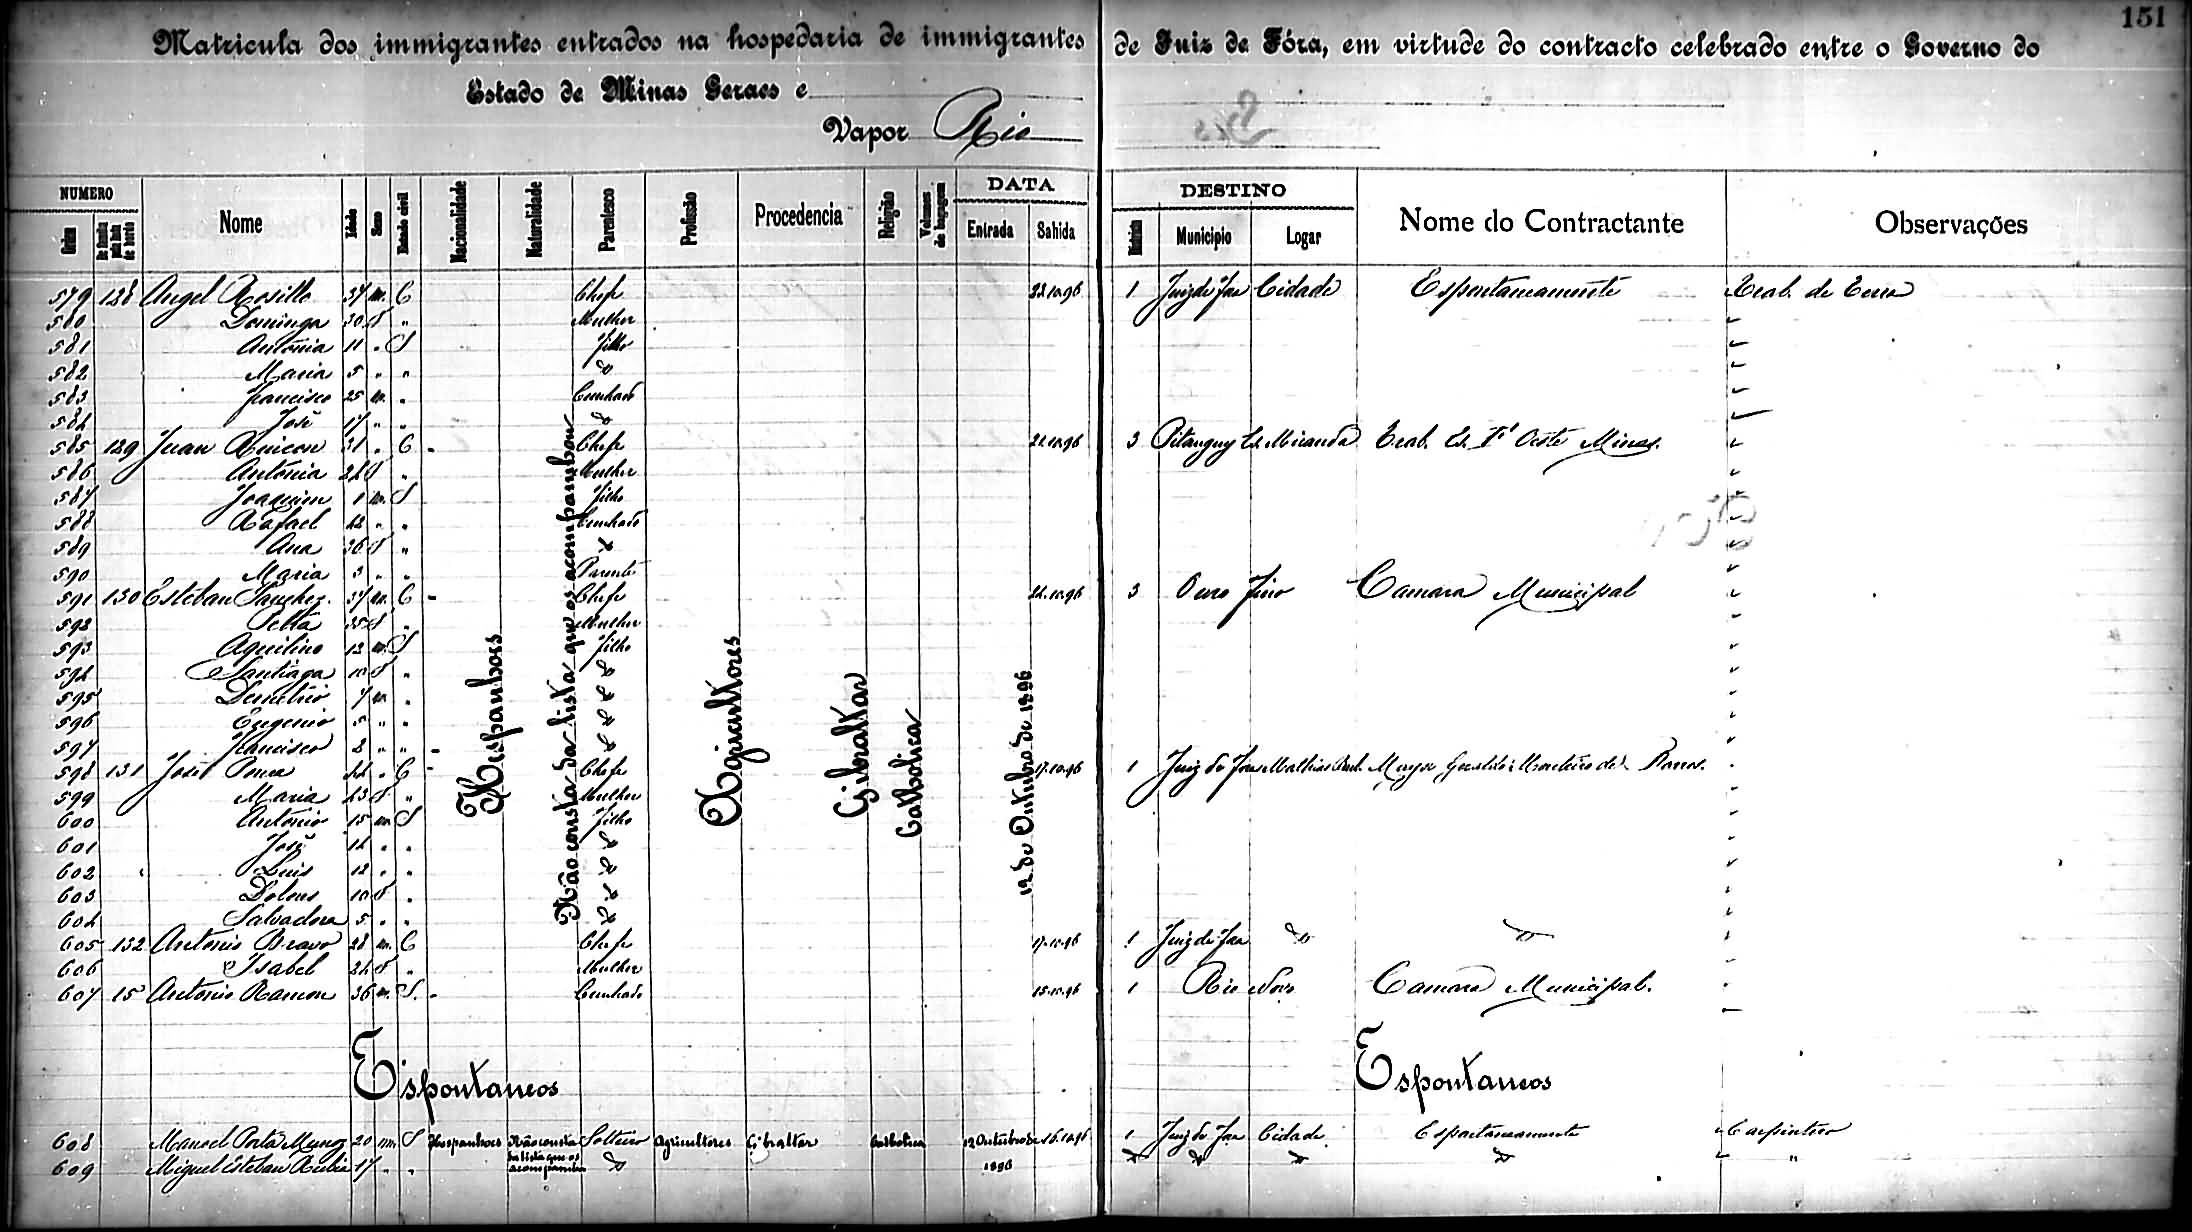 151
Matricula dos immigrantes entrados na hospedaria de immigrantes de Juiz de Fóra, em virtude do contracto celebrado entre o Governo do
Estado de Minas Geraes e
Vapor Rio
NUMERO DATA DESTINO
Ordem Nome Idade Sexo Estado civil Nacionalidade Naturalidade Parentesco Profissão Procedencia Religião Volumes de bagagem Entrada Sahida Districto Municipio Logar Nome do Contractante Observações
579 128 Angel Rosillo 37 m. C Chefe 22.10.96 1 Juiz de Fora Cidade Espontaneamente Trab. de Terra
580 Dominga 30 f " Mulher
581 Antonia 11 " S Filho
582 Maria 5 " " do
583 Francisco 25 m. " Cunhado
584 José 17 " " do
585 129 Juan Rincon 31 " C 22.10.96 Chefe 3 Pitanguy Trab. Oeste Minas.
586 Antonia 24 f " Mulher
587 Joaquim 1 m. S Filho
588 Rafael 42 " " Cunhado
589 Ana 36 f "
590 Maria 3 " " Parente
591 130 Esteban Sanchez 37 m. C Chefe 22.10.96 3 Ouro Fino Camara Municipal
592 35 f " Mulher
593 Aquilino 12 m. S Filho
594 Santiaga 10 f " do
595 Demetrio 7 m. " do
596 Eugenio 5 " " do
597 Francisco 2 " " do
598 131 José Ponce 44 " C Chefe 17.10.96 1 Juiz de Fora Mathias Barb. Major Geraldo Monteiro de Barros.
599 Maria 43 f " Mulher
600 Antonio 15 m. S Filho
601 José 14 " " do
602 Luis 12 " " do
603 Dolores 10 f " do
604 Salvadora 5 " " do
605 132 Antonio Bravo 28 m. C Chefe 17.10.96 1 Juiz de Fora do do
606 Isabel 24 f " Mulher
607 15 Antonio Ramon 36 m. S. Cunhado 15.10.96 1 Rio Novo Camara Municipal.
Hespanhoes
Não consta da lista que os acompanhou
Agricultores
Gibraltar
Catholica
12 de Outubro de 1896
Espontaneos Espontaneos
608 Manoel Porta Munoz 20 m. S Hespanhoes Não consta da lista que os acompanhou Solteiro Agricultores Gibraltar Catholica 12 Outubro de 1896 16.10.96 1 Juiz de Fora Cidade Espontaneamente Carpinteiro
609 Miguel Esteban 17 " " do do do do do "